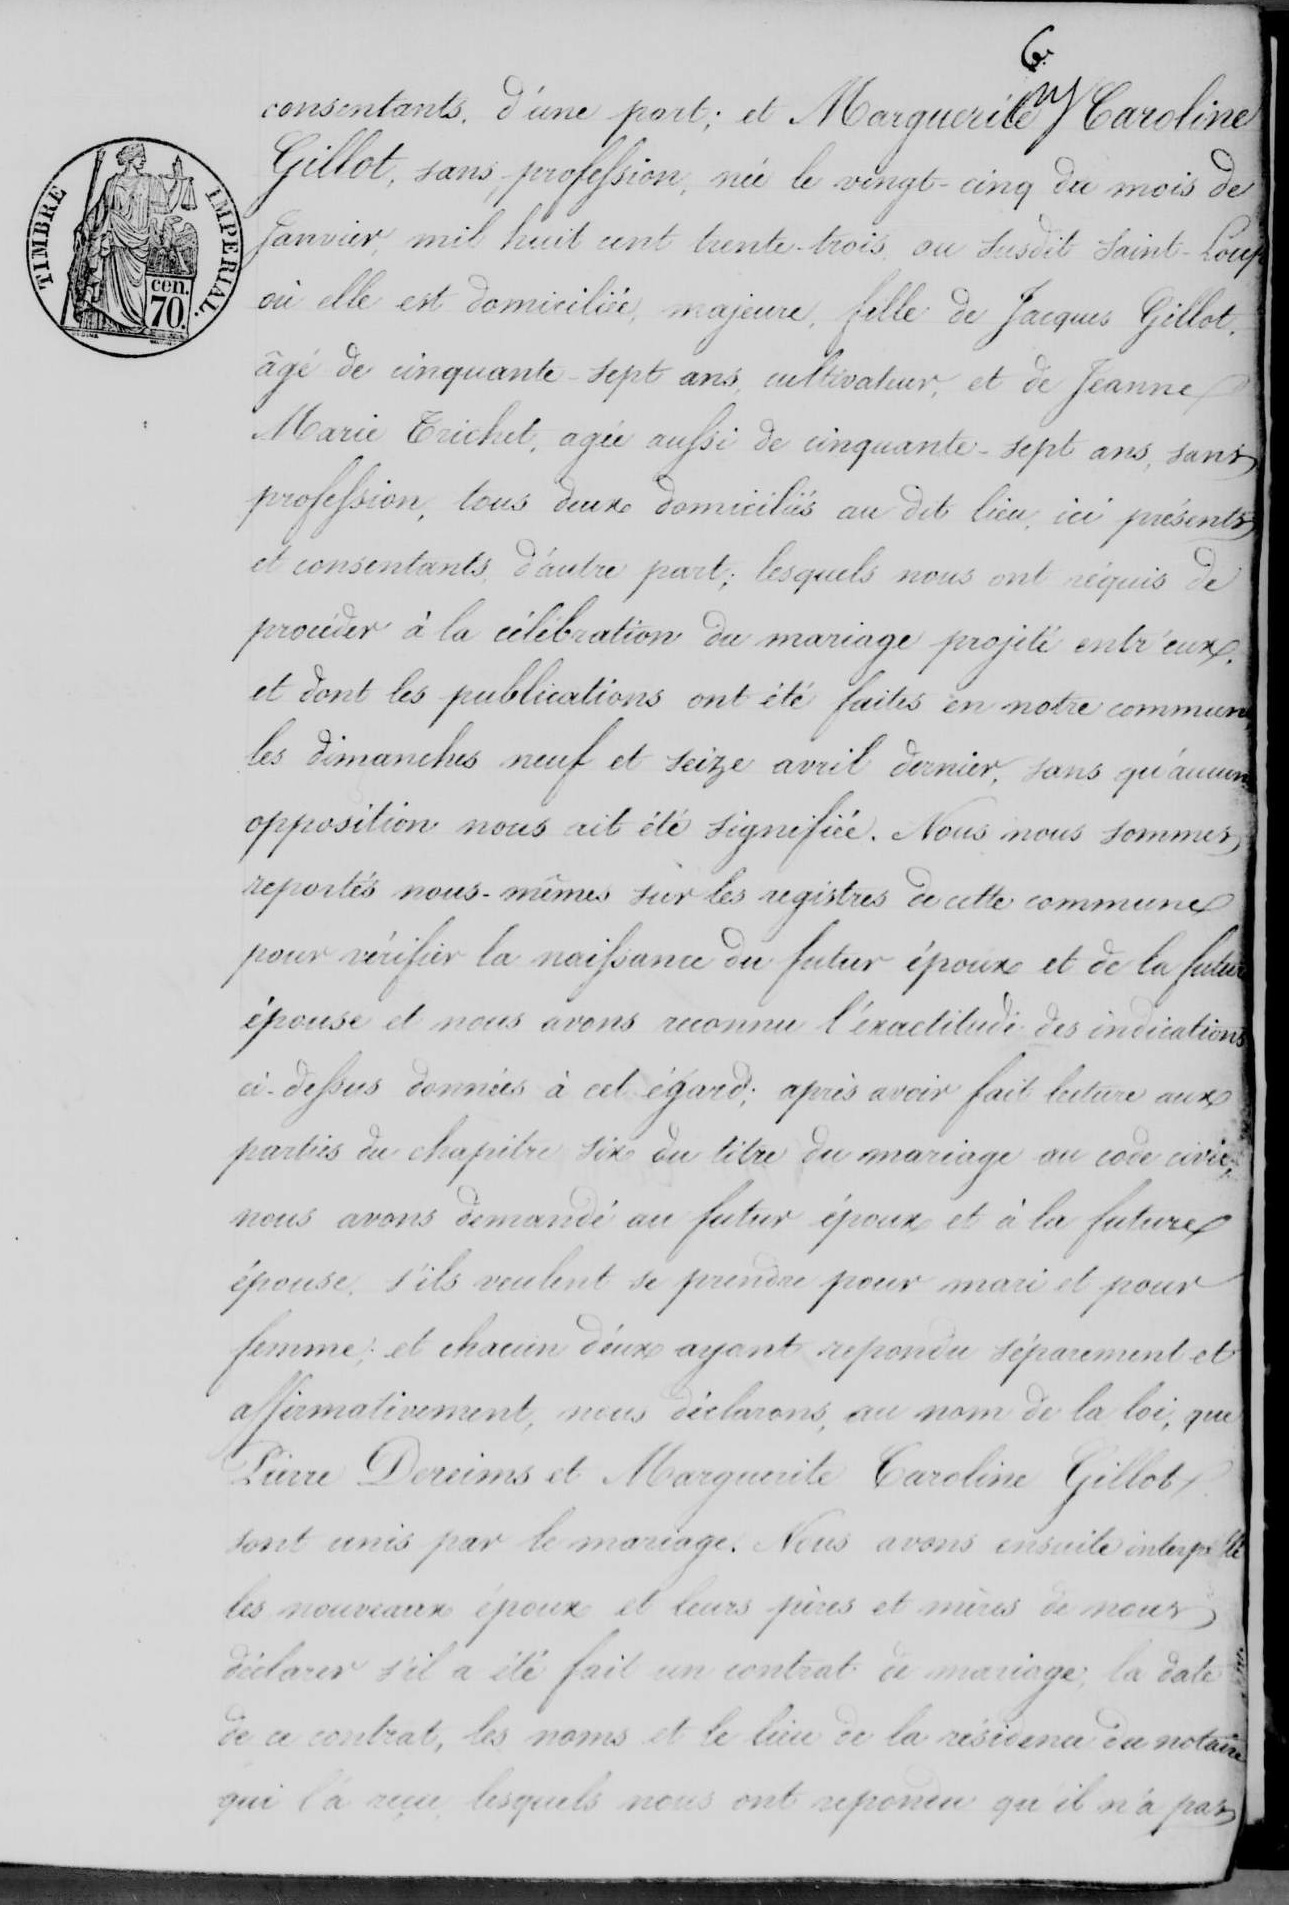 6
consentants, d'une part; et Marguerite Caroline
Gillot, sans profession, née le vingt-cinq du mois de
Janvier, mil huit cent trente-trois, au susdit Saint-Loup
où elle est domiciliée, majeure, fille de Jacques Gillot,
âgé de cinquante-sept ans, cultivateur, et de Jeanne
Marie Trichet, agée aussi de cinquante-sept ans, sans
profession, tous deux domiciliés au dit lieu, ici présents
et consentants, d'autre part; lesquels nous ont réquis de
procéder à la célébration du mariage projité entr'eux,
et dont les publications ont été faites en notre commune
les dimanches neuf et seize avril dernier, sans qu'aucune
opposition nous ait été signifiée. Nous nous sommes
reportés nous-mêmes sur les registres de cette commune
pour vérifier la naissance du futur époux et de la future
épouse et nous avons reconnu l'éxactitude des indications
ci-dessus données à cet égard; après avoir fait lecture aux
parties du chapitre six du titre du mariage au code civil,
nous avons demandé au futur époux et à la future
épouse, s'ils veulent se prendre pour mari et pour
femme; et chacun d'eux ayant repondu séparement et
affirmativement, nous déclarons, au nom de la loi, que
Pierre Dereims et Marguerite Caroline Gillot
sont unis par le mariage. Nous avons ensuite interpellé
les nouveaux époux et leurs pères et mères de nous
déclarer s'il a été fait un contrat de mariage, la date
de ce contrat, les noms et le lieu de la résidence du notaire
qui l'a reçu, lesquels nous ont repondu qu'il n'a pas
TIMBRE IMPERIAL.
cen.
70.